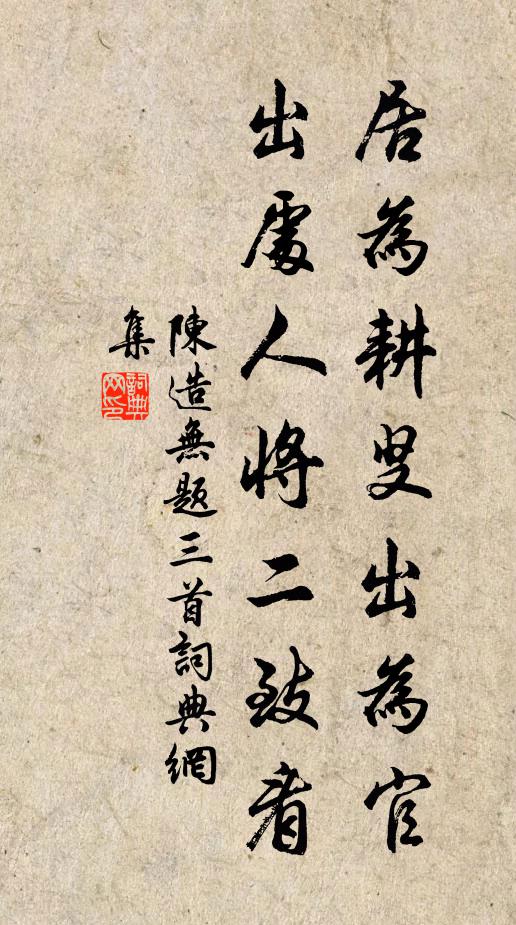 居為耕叟出為官
出處人將二致看
陳造無題三首詞典網
集
詞典网印